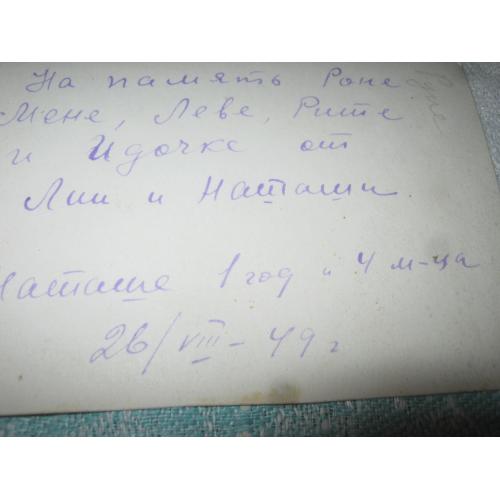 На память Роне
Мене, Леве, Рите
и Идочке от
Лии и Наташи.
Наташе 1 год и 4 м-ца
26/VIII - 49 г